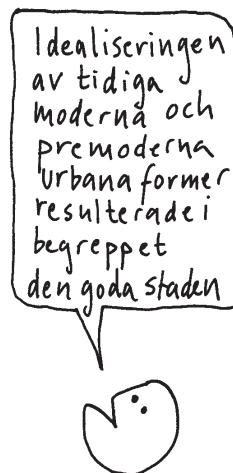 Idealiseringen
av tidiga
moderna och
premoderna
urbana former
resulterade i
begreppet
den goda staden